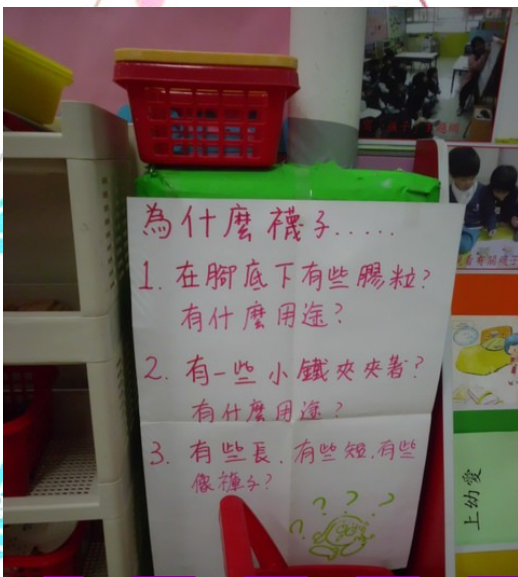 為什麼襪子.....
1. 在腳底下有些膠粒?
有什麼用途?
2. 有一些小鐵夾夾著?
有什麼用途?
3. 有些長,有些短,有些
像褲子?
? ? ? ?
上幼愛